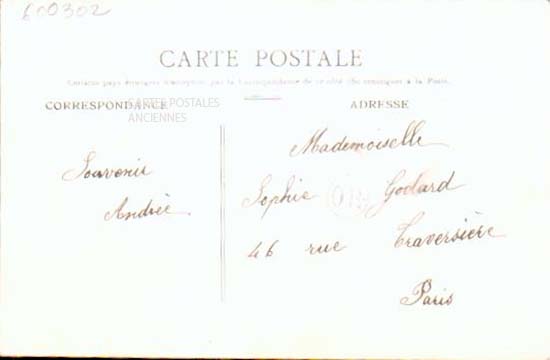 600302
CARTE POSTALE
Certains pays étrangers n'acceptent pas la correspondance de ce côté (Se renseigner à la Poste).
CORRESPONDANCE
ADRESSE
CARTES POSTALES
ANCIENNES
Souvenir
Andrée
Mademoiselle
Sophie Godard
46 rue Traversière
Paris